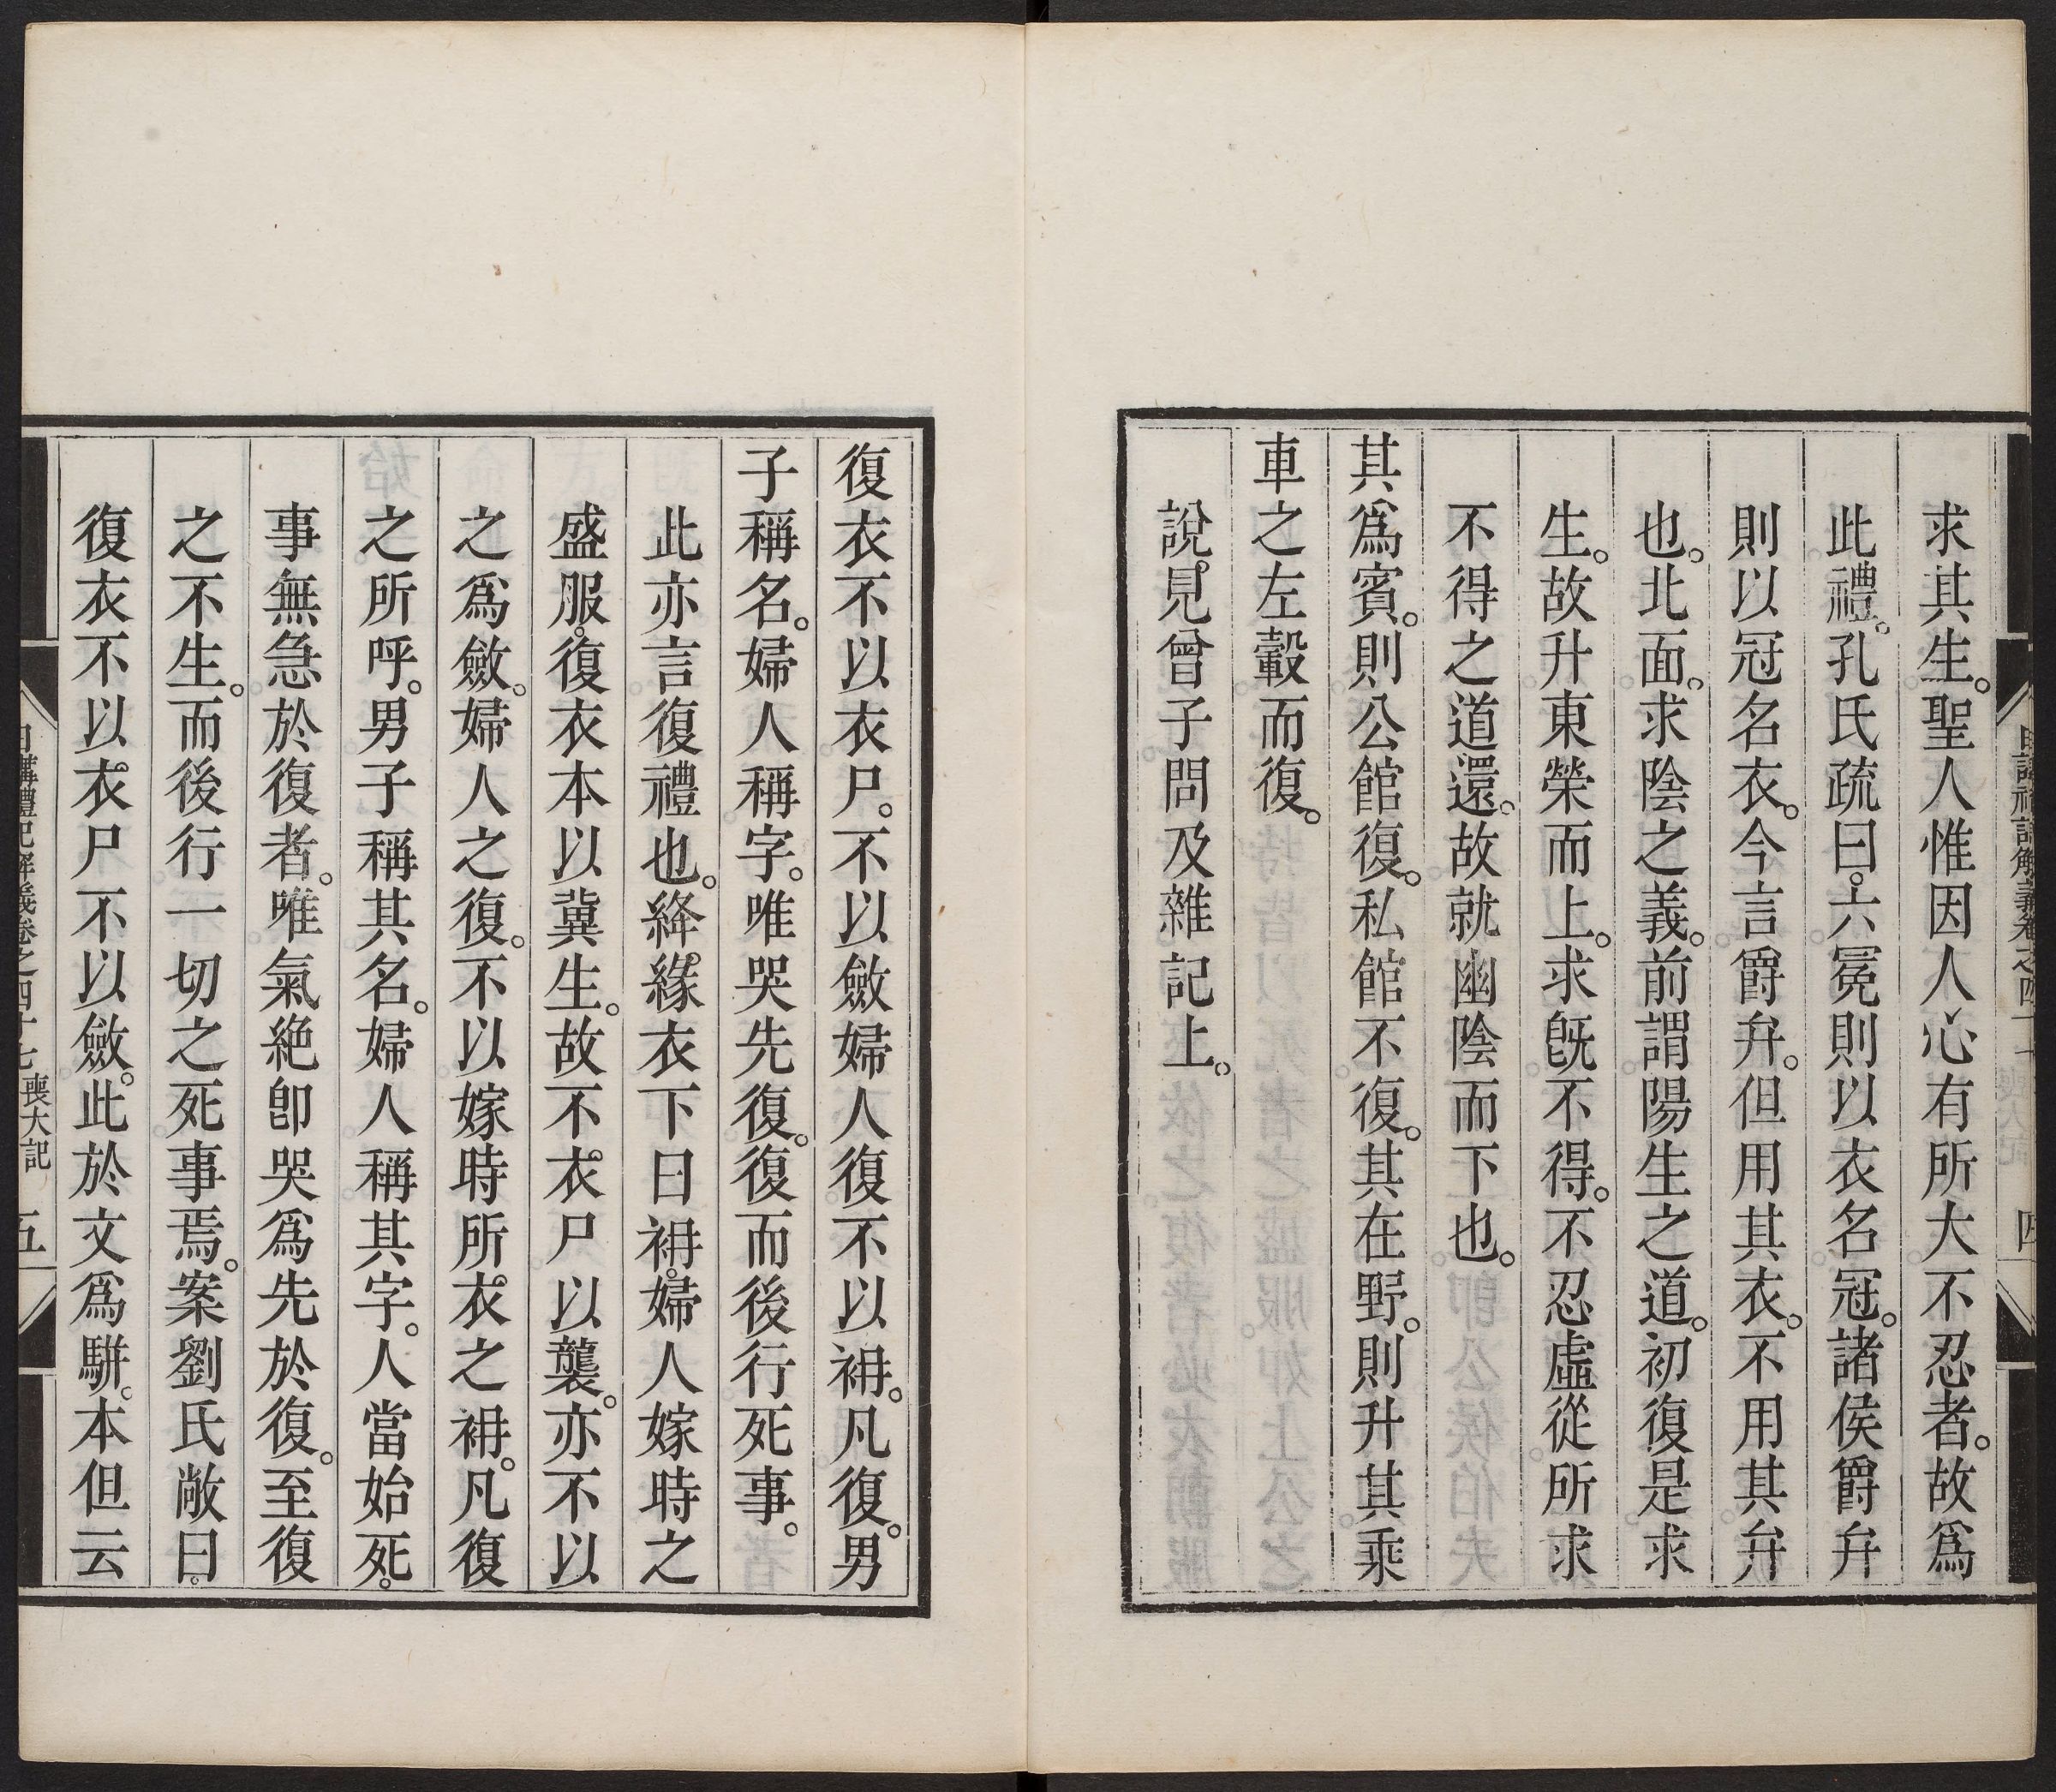 求其生。聖人惟因人心有所大不忍者。故爲
此禮。孔氏疏曰。六冕則以衣名冠。諸侯爵弁
則以冠名衣。今言爵弁。但用其衣。不用其弁
也。北面。求陰之義。前謂陽生之道。初復是求
生。故升東榮而上。求旣不得。不忍虛從所求
不得之道還。故就幽陰而下也。
其爲賓。則公館復。私館不復。其在野。則升其乘
車之左轂而復。
說見曾子問及雜記上。
復衣不以衣尸。不以斂婦人復不以袡。凡復。男
子稱名。婦人稱字。唯哭先復。復而後行死事。
此亦言復禮也。絳緣衣下曰袡。婦人嫁時之
盛服。復衣本以冀生。故不衣尸以襲。亦不以
之爲斂。婦人之復。不以嫁時所衣之袡。凡復
之所呼。男子稱其名。婦人稱其字。人當始死。
事無急於復者。唯氣絶卽哭爲先於復。至復
之不生。而後行一切之死事焉。案劉氏敞曰。
復衣不以衣尸不以斂。此於文爲駢。本但云
日講禮記解義卷之四十七 喪大記 五